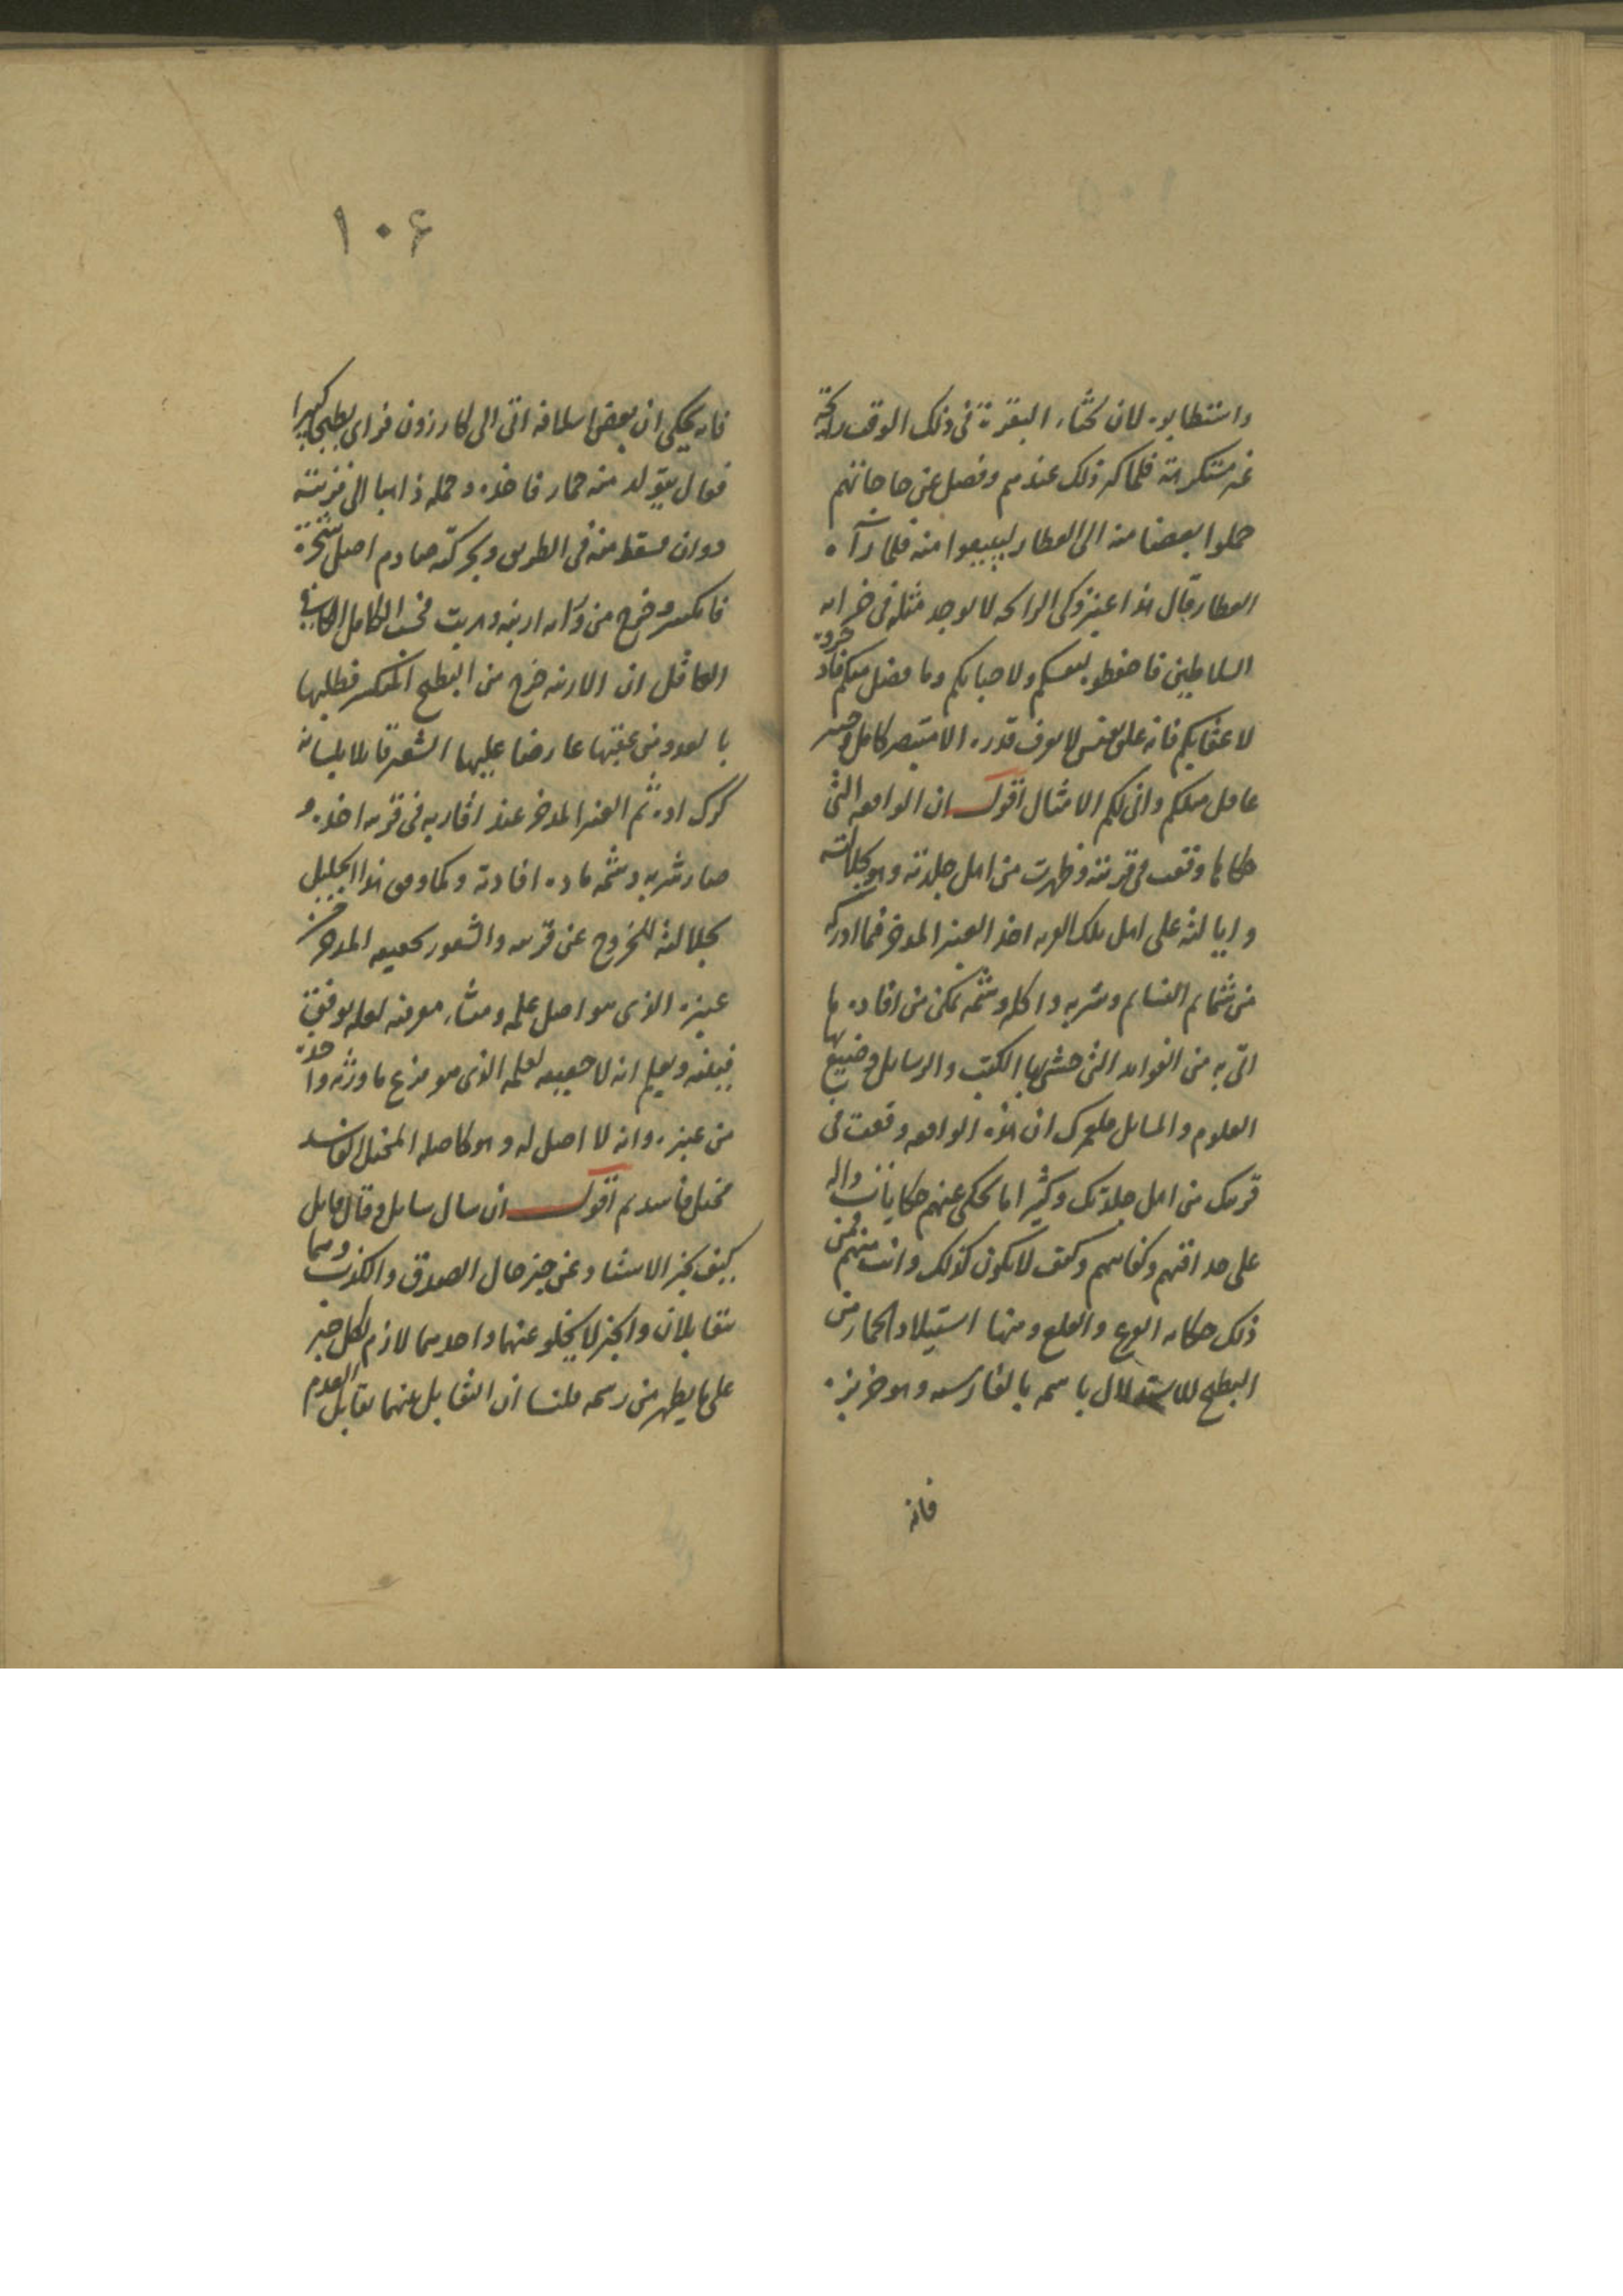 واستطابوه لان لخثاء البقرة فى ذلك الوقت رائحة
غير مستكرهة فلما كثر ذلك عندهم وفضل عن حاجاتهم
حملوا بعضا منه الى العطار ليبيعوا منه فلما رآه
العطار قال هذا عنبر زكى الرائحه لا يوجد مثله فى خزاين
السلاطين فاحفظوه لنفسكم ولاحبابكم وما فضل منكم
لاعقابكم فانه علق نفيس لا يعرف قدره الا متبصر كامل
عاقل مثلكم وانى لكم الامثال اقول ان الواقعه التى
حكاها وقعت فى قريته وظهرت من اهل جلدته وهو بجلالته
وايالته على اهل تلك القريه اخذ العنبر المدخر فما ادركه
من شمايم النسايم وشربه واكله وشمه تمكن من افاده ما
اتى به من الفوايد التى حشى بها الكتب والرسايل وضيع بها
العلوم والمسايل فلعمرك ان هذه الواقعه وقعت فى
قريتك من اهل جلدتك وكثيرا ما يحكى عنهم حكايات دالة
على حذاقتهم وكياستهم وكيف لا يكون كذلك وانت منهم فمن
ذلك حكايه القرع والقلع ومنها استيلاد الحمار من
البطيخ للاستدلال باسمه بالفارسيه وهو خربزه
فانه
١٠۶
فانه يحكى ان بعض اسلافه اتى الى كازرون فراى بطيخا كبيرا
فقال يتولد منه حمار فاخذه وحمله ذاهبا الى قريته
دوان فسقط منه فى الطريق وبحركته صادم اصل شجرة
فانكسر وخرج من ورائه ارنبه وهربت فحسب الكامل
العاقل ان الارنبه خرج من البطيخ المنكسر فطلبها
بالعدو من عقبها عارضا عليها الشعير قايلا بلسانه
كرك اده ثم العنبر المدخر عند اقاربه فى قريه اخذه و
صار شربه وشمه ماده افادته وكما وفق هذا الجليل
بجلالته للخروج عن قريته والشعور بحقيقه المدخر من
عنبره الذى هو اصل علمه ومنشاء معرفته لعله يوفق
فيبلغه ويعلم انه لا حقيقه لعلمه الذى هو فرع ما ورثه واخذه
من عنبره وانه لا اصل له وهو كاصله المختل الفاسد
مختل فاسد ثم اقول ان سال سايل وقال قايل
كيف يجز الاستثناء عن جز حال الصدق والكذب وهما
متقابلان والخبر لا يخلو عنهما واحدهما لازم لكل خبر
على ما يظهر من رسمه قلنا ان التقابل بينهما تقابل العدم